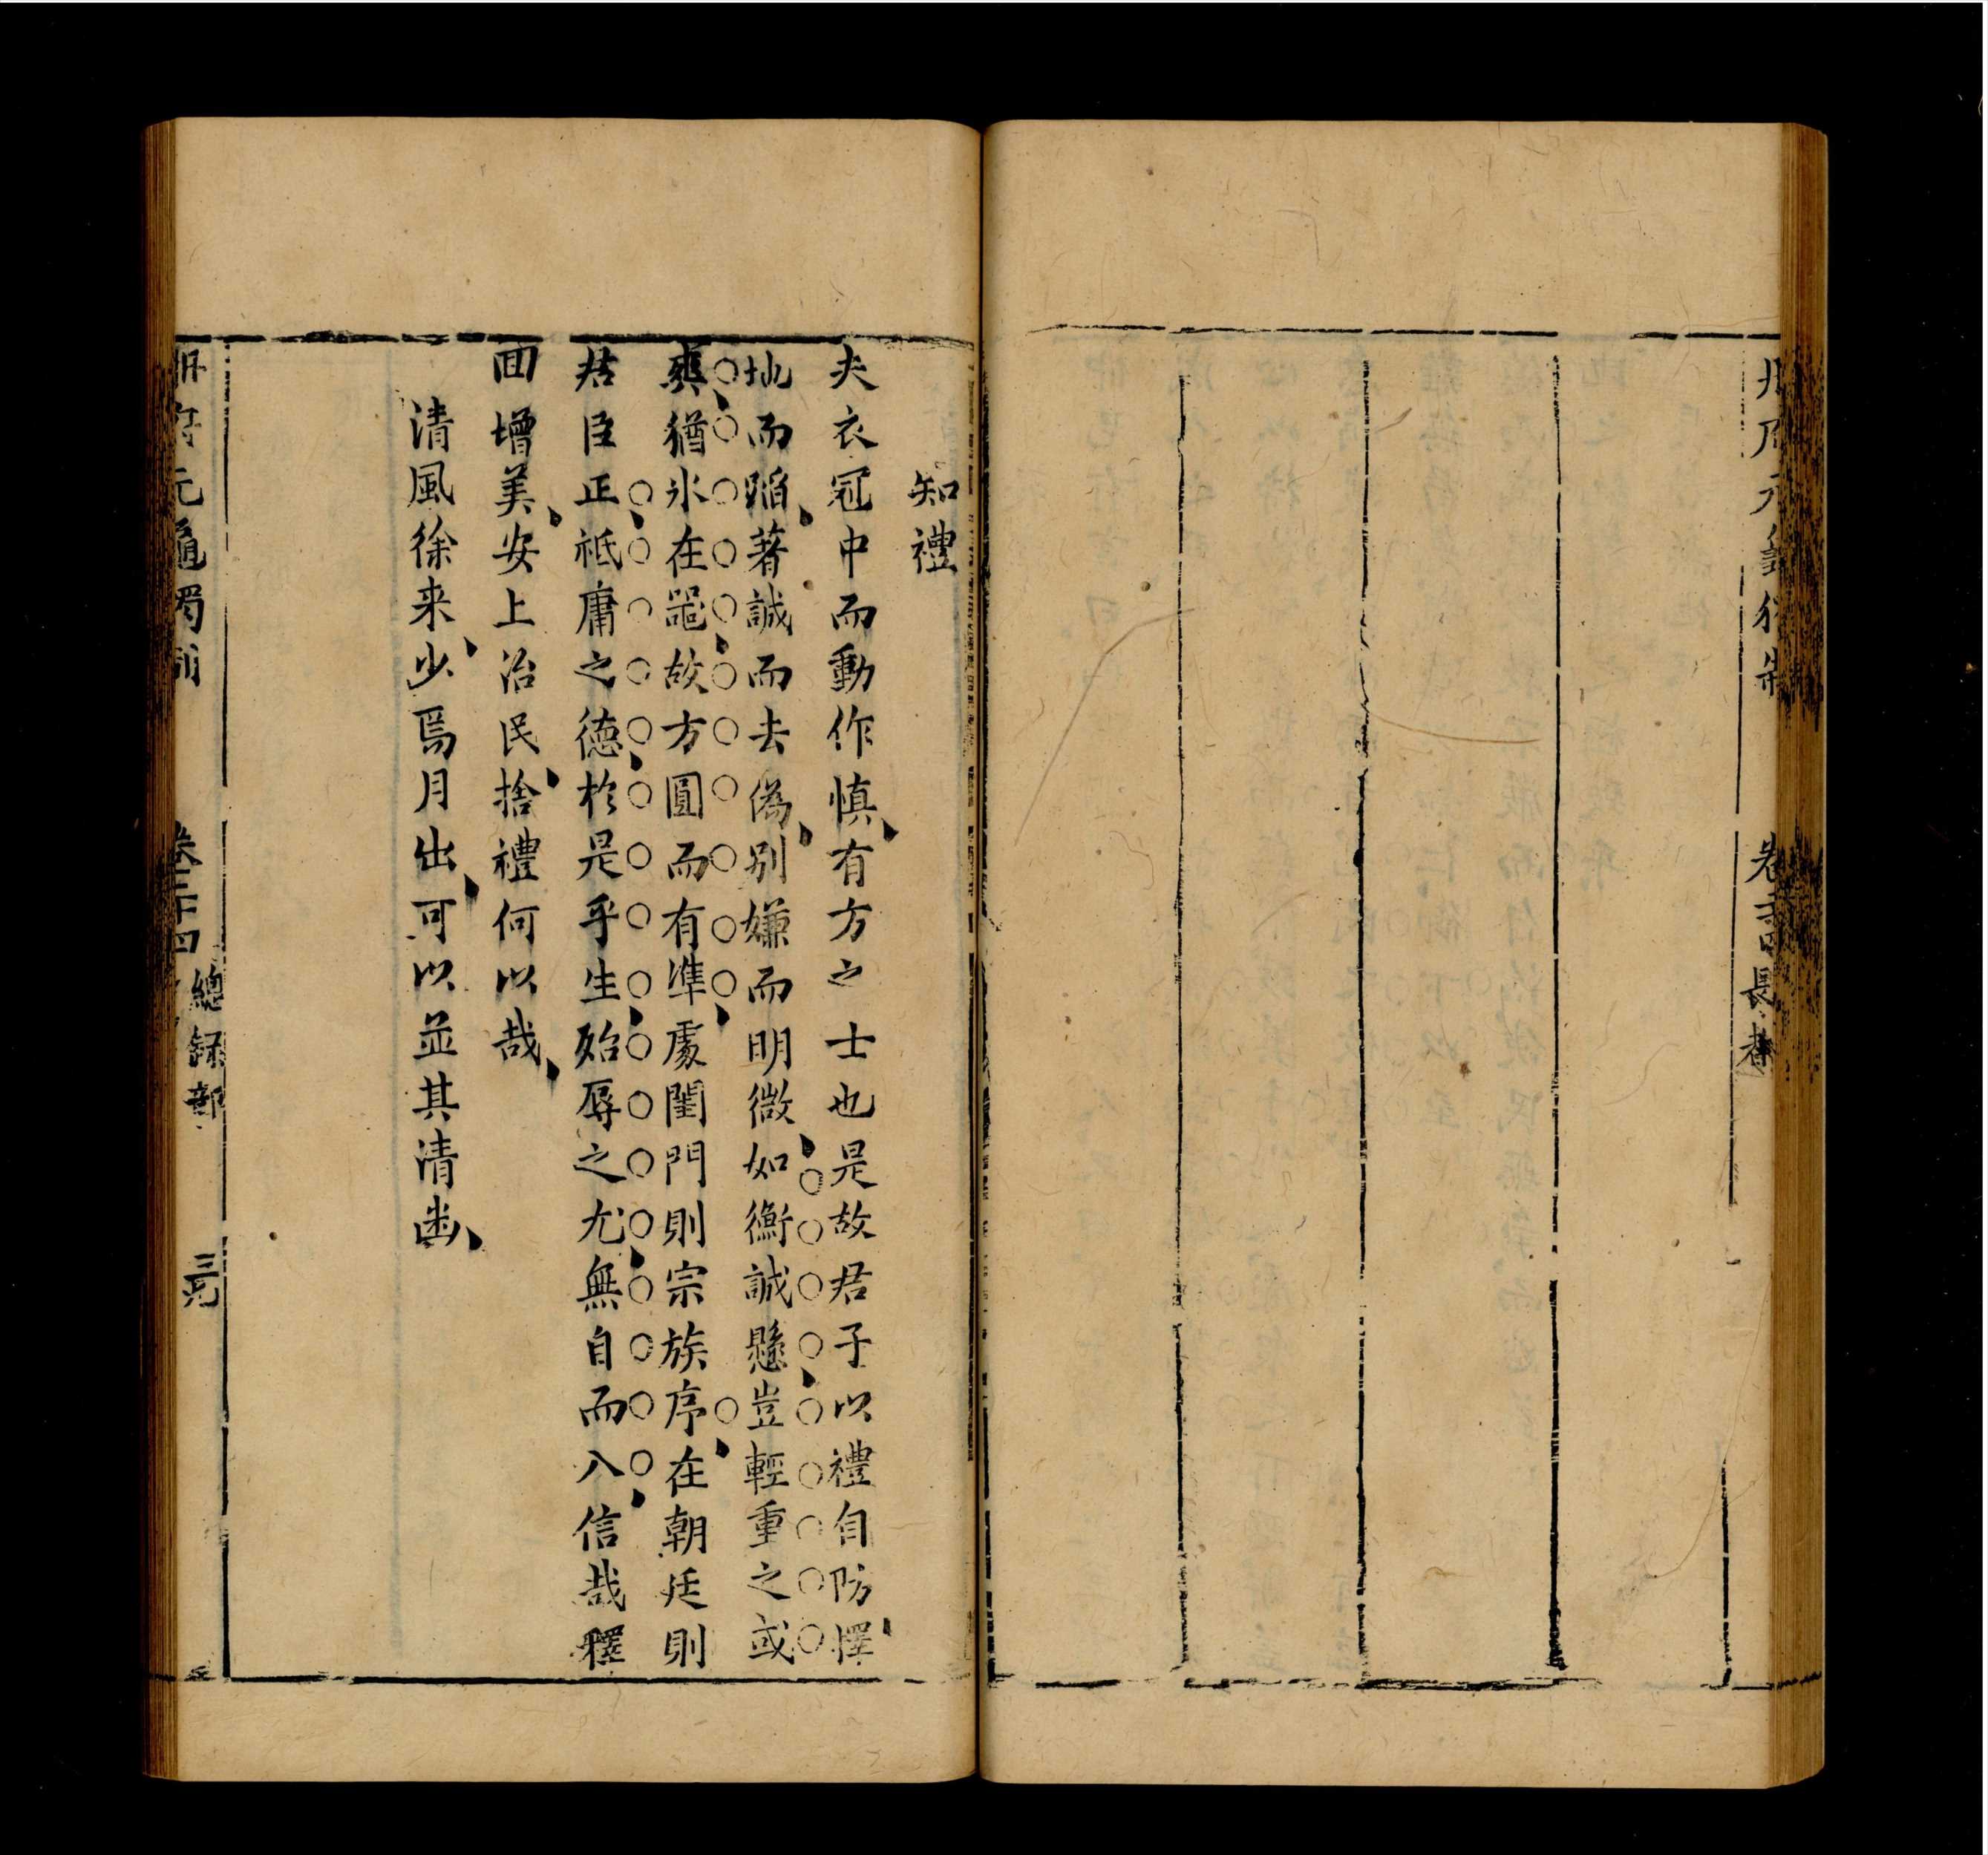 卷二十四長者
知禮
夫衣冠中而動作慎有方之士也是故君子以禮自防擇
地而蹈著誠而去偽別嫌而明微如衡誠懸豈輕重之或
爽猶氷在噐故方圓而有準處閨門則宗族序在朝廷則
君臣正祗庸之德於是乎生殆辱之尤無自而入信哉釋
回增美安上治民捨禮何以哉
清風徐来少焉月出可以並其清幽
冊府元龜獨制
卷二十四 總録部